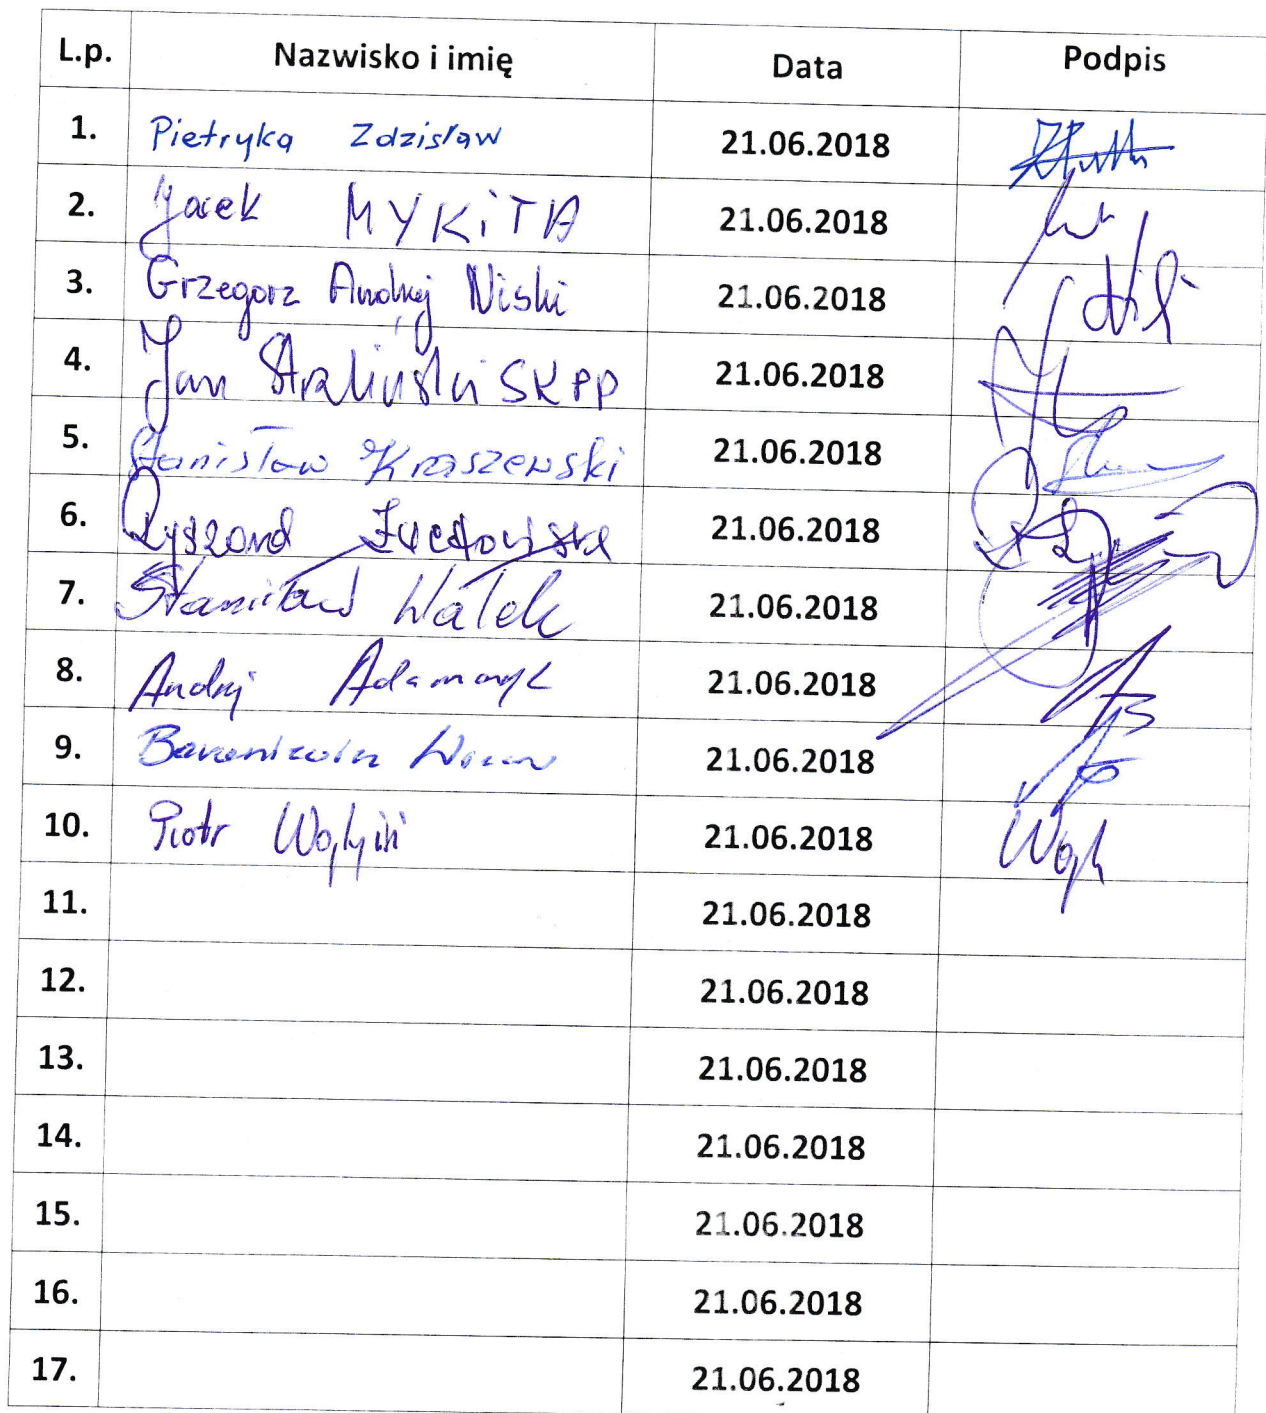 L.p. Nazwisko i imię Data Podpis
1. Pietryka Zdzisław 21.06.2018
2. Jacek MYKiTA 21.06.2018
3. Grzegorz Andrzej Niski 21.06.2018
4. Jan SKPP 21.06.2018
5. Stanisław Kraszewski 21.06.2018
6. Ryszard 21.06.2018
7. Stanisław Wałek 21.06.2018
8. Andrzej Adamczyk 21.06.2018
9. 21.06.2018
10. Piotr 21.06.2018
11. 21.06.2018
12. 21.06.2018
13. 21.06.2018
14. 21.06.2018
15. 21.06.2018
16. 21.06.2018
17. 21.06.2018